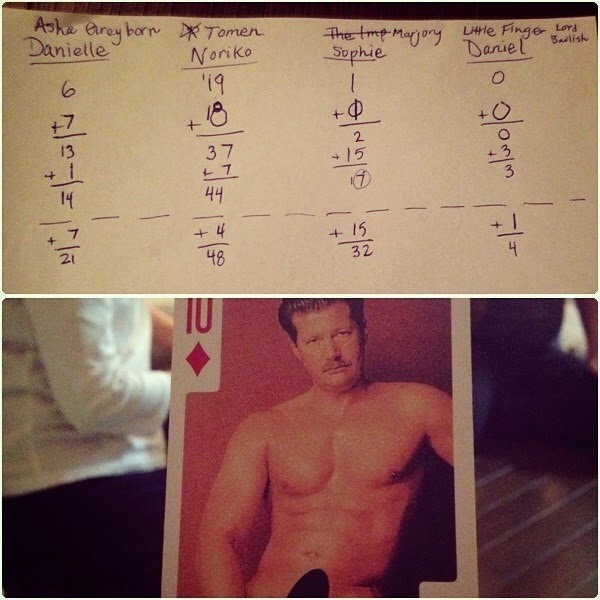 Asha Greyborn Tomen The Imp Marjory Little Finger Lord Baelish
Danielle Noriko Sophie Daniel
6 19 1 0
+7 +18 +1 +0
13 37 2 0
+1 +7 +15 +3
14 44 17 3
+7 +4 +15 +1
21 48 32 4
10